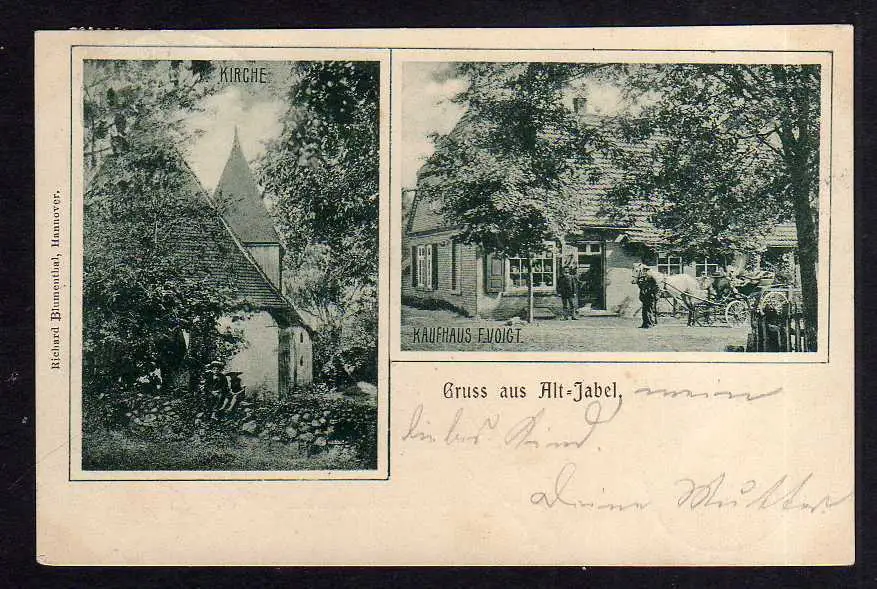 KIRCHE
KAUFHAUS F.VOIGT.
Richard Blumenthal, Hannover.
Gruss aus Alt=Jabel. mein
liebes Kind.
Deine Mutter